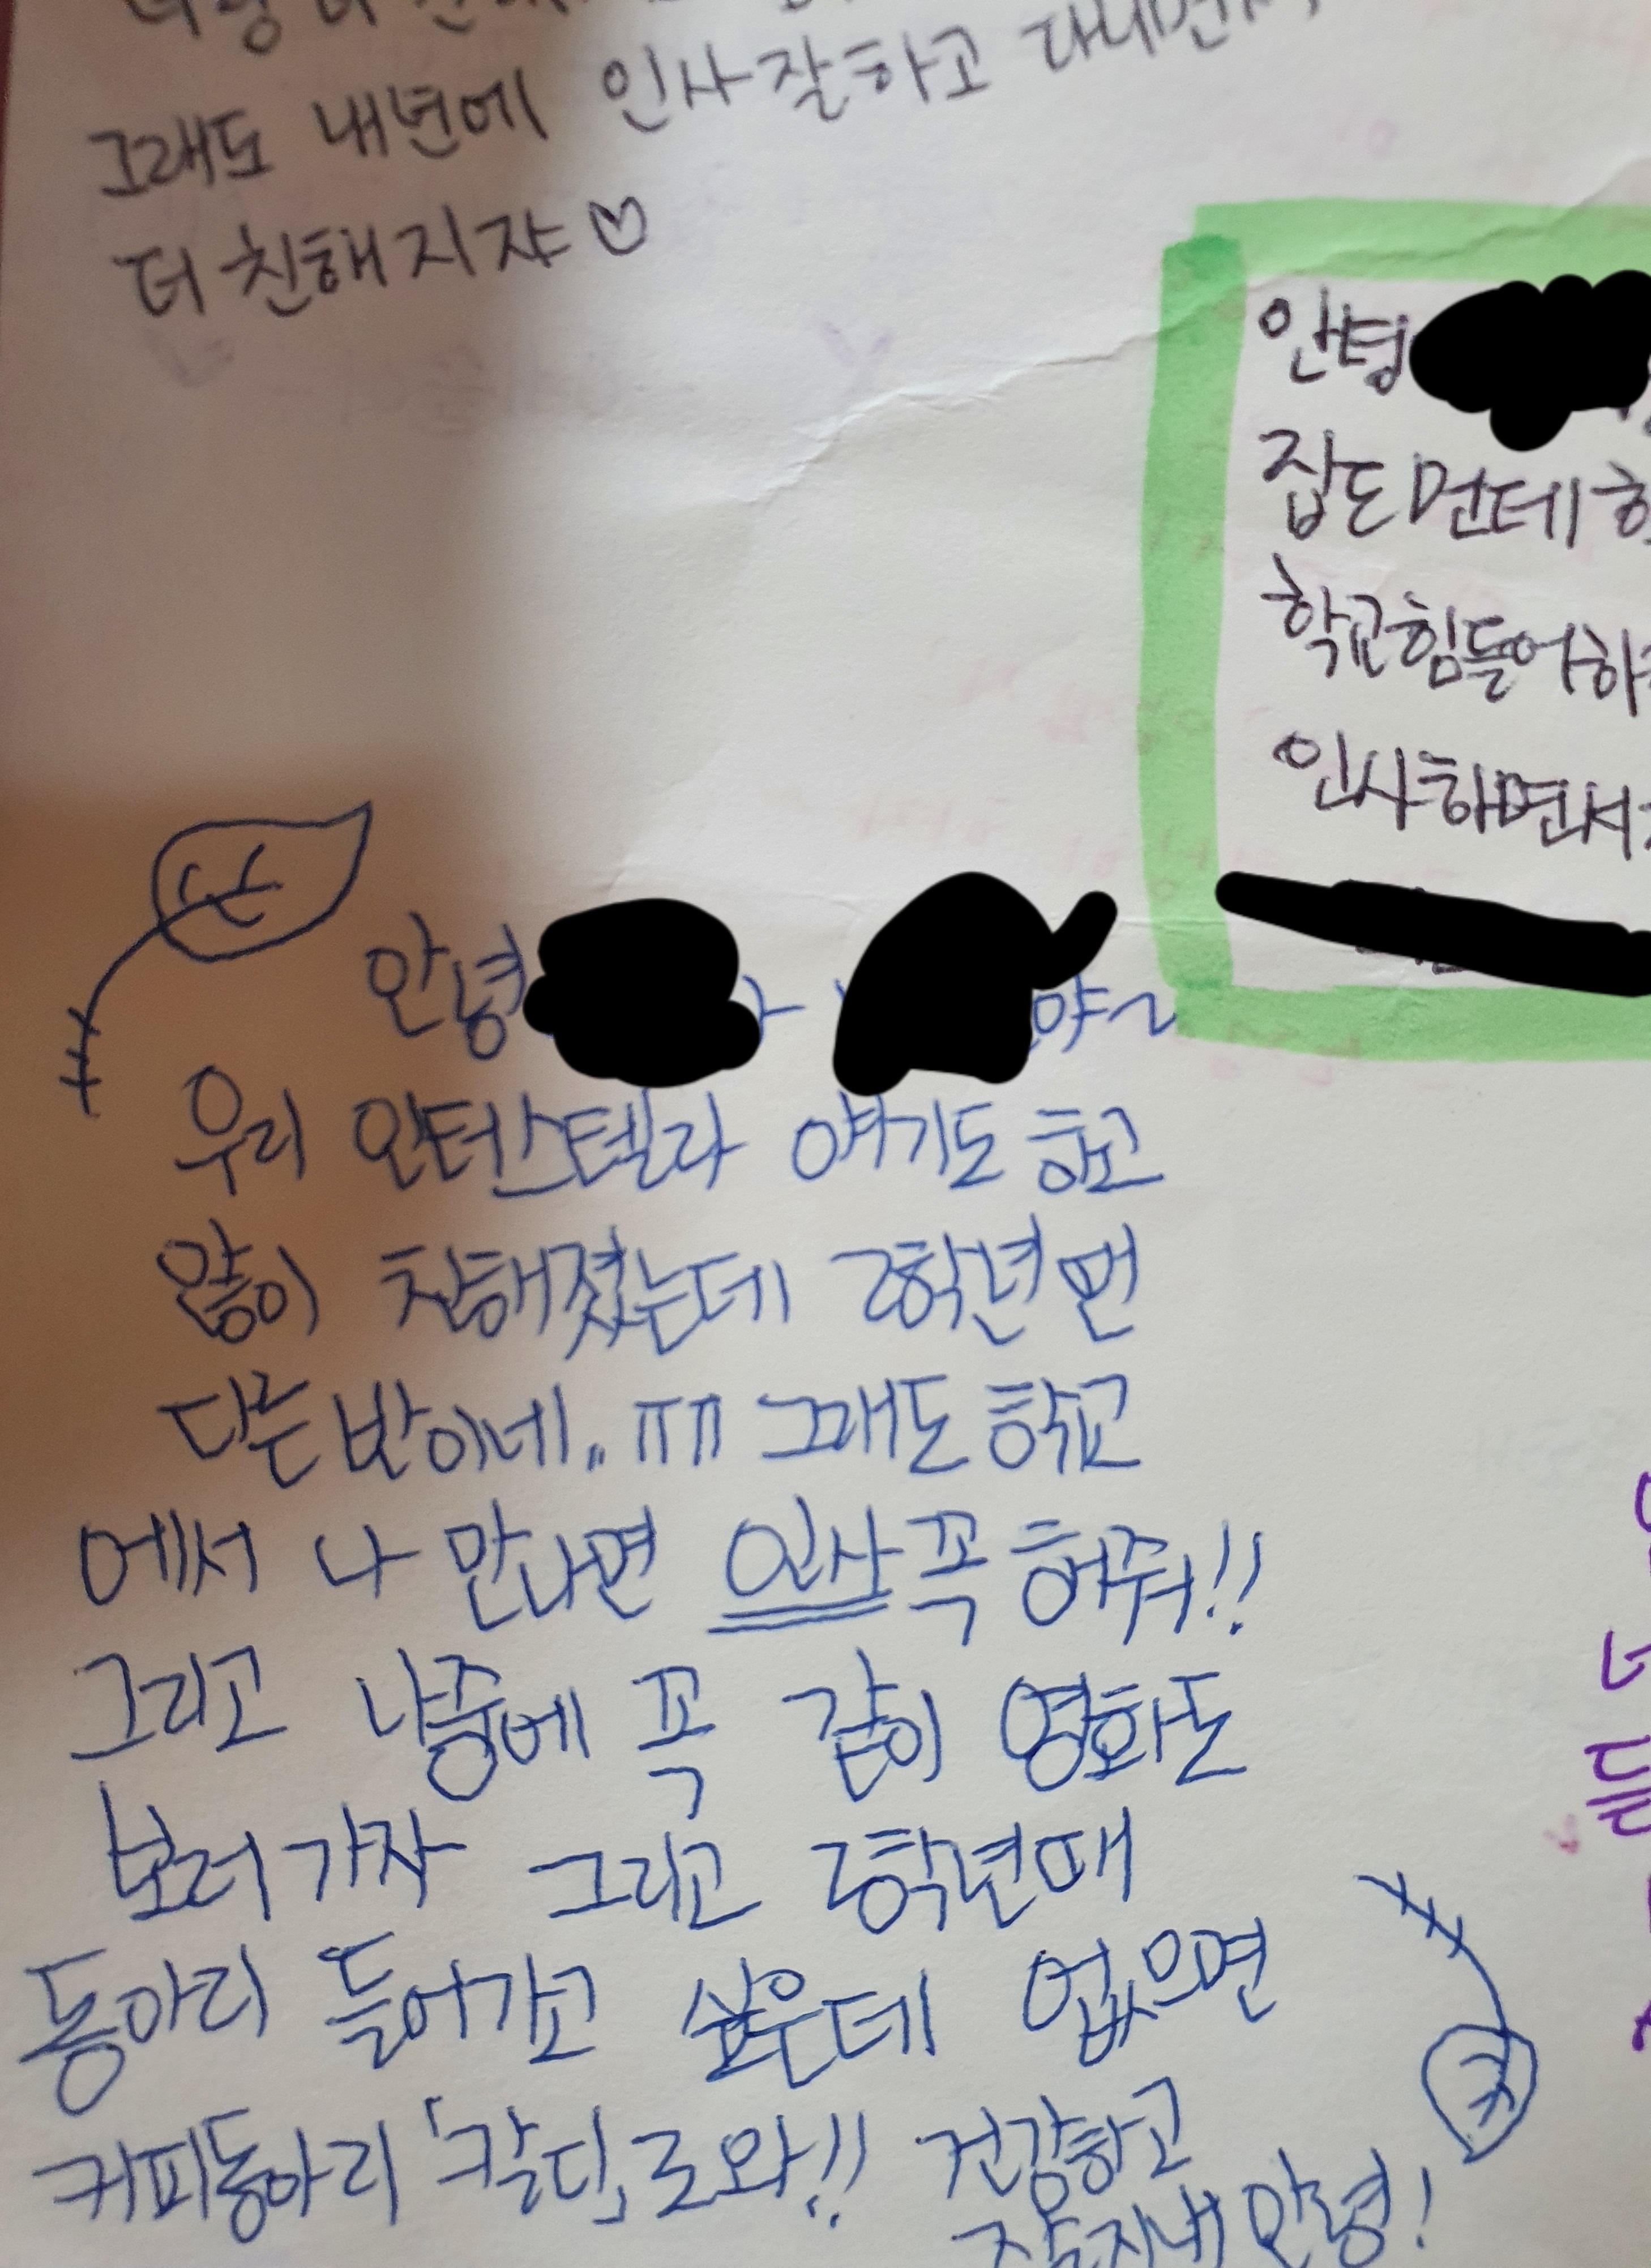 그래도 내년에 인사 잘하고 다니면서
더 친해지쟈♡
안녕
집도 먼데
학교 힘들어
인사하면서
안녕
야~
우리 인터스텔라 얘기도 하고
많이 친해졌는데 2학년 땐
다른 반이네.. ㅠㅠ 그래도 학교
에서 나 만나면 인사 꼭 해줘!!
그리고 나중에 꼭 같이 영화도
보러 가자 그리고 2학년때
동아리 들어가고 싶은데 없으면
커피동아리 「칼디」로 와!! 건강하고
잘 지내 안녕!